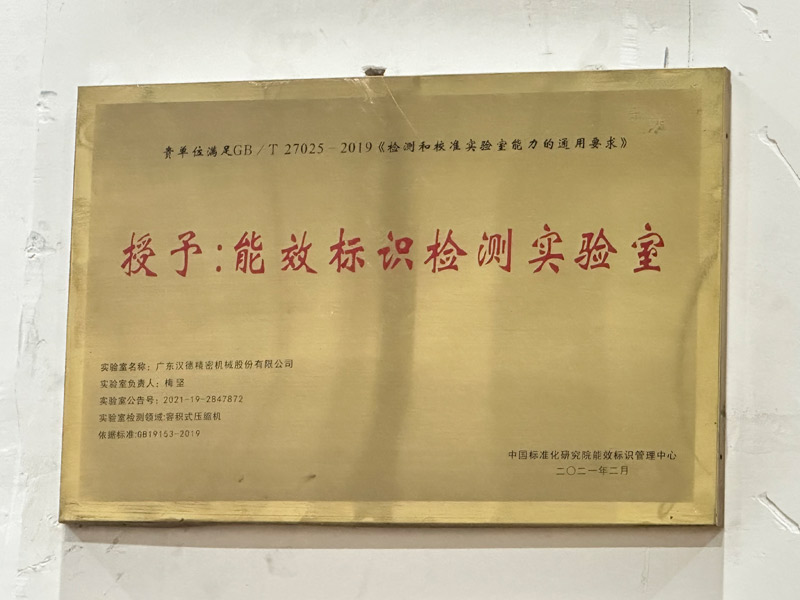 贵单位满足GB/T 27025-2019《检测和校准实验室能力的通用要求》
授予:能效标识检测实验室
实验室名称: 广东汉德精密机械股份有限公司
实验室负责人: 梅坚
实验室公告号: 2021-19-2847872
实验室检测领域:容积式压缩机
依据标准:GB19153-2019
中国标准化研究院能效标识管理中心
二〇二一年二月